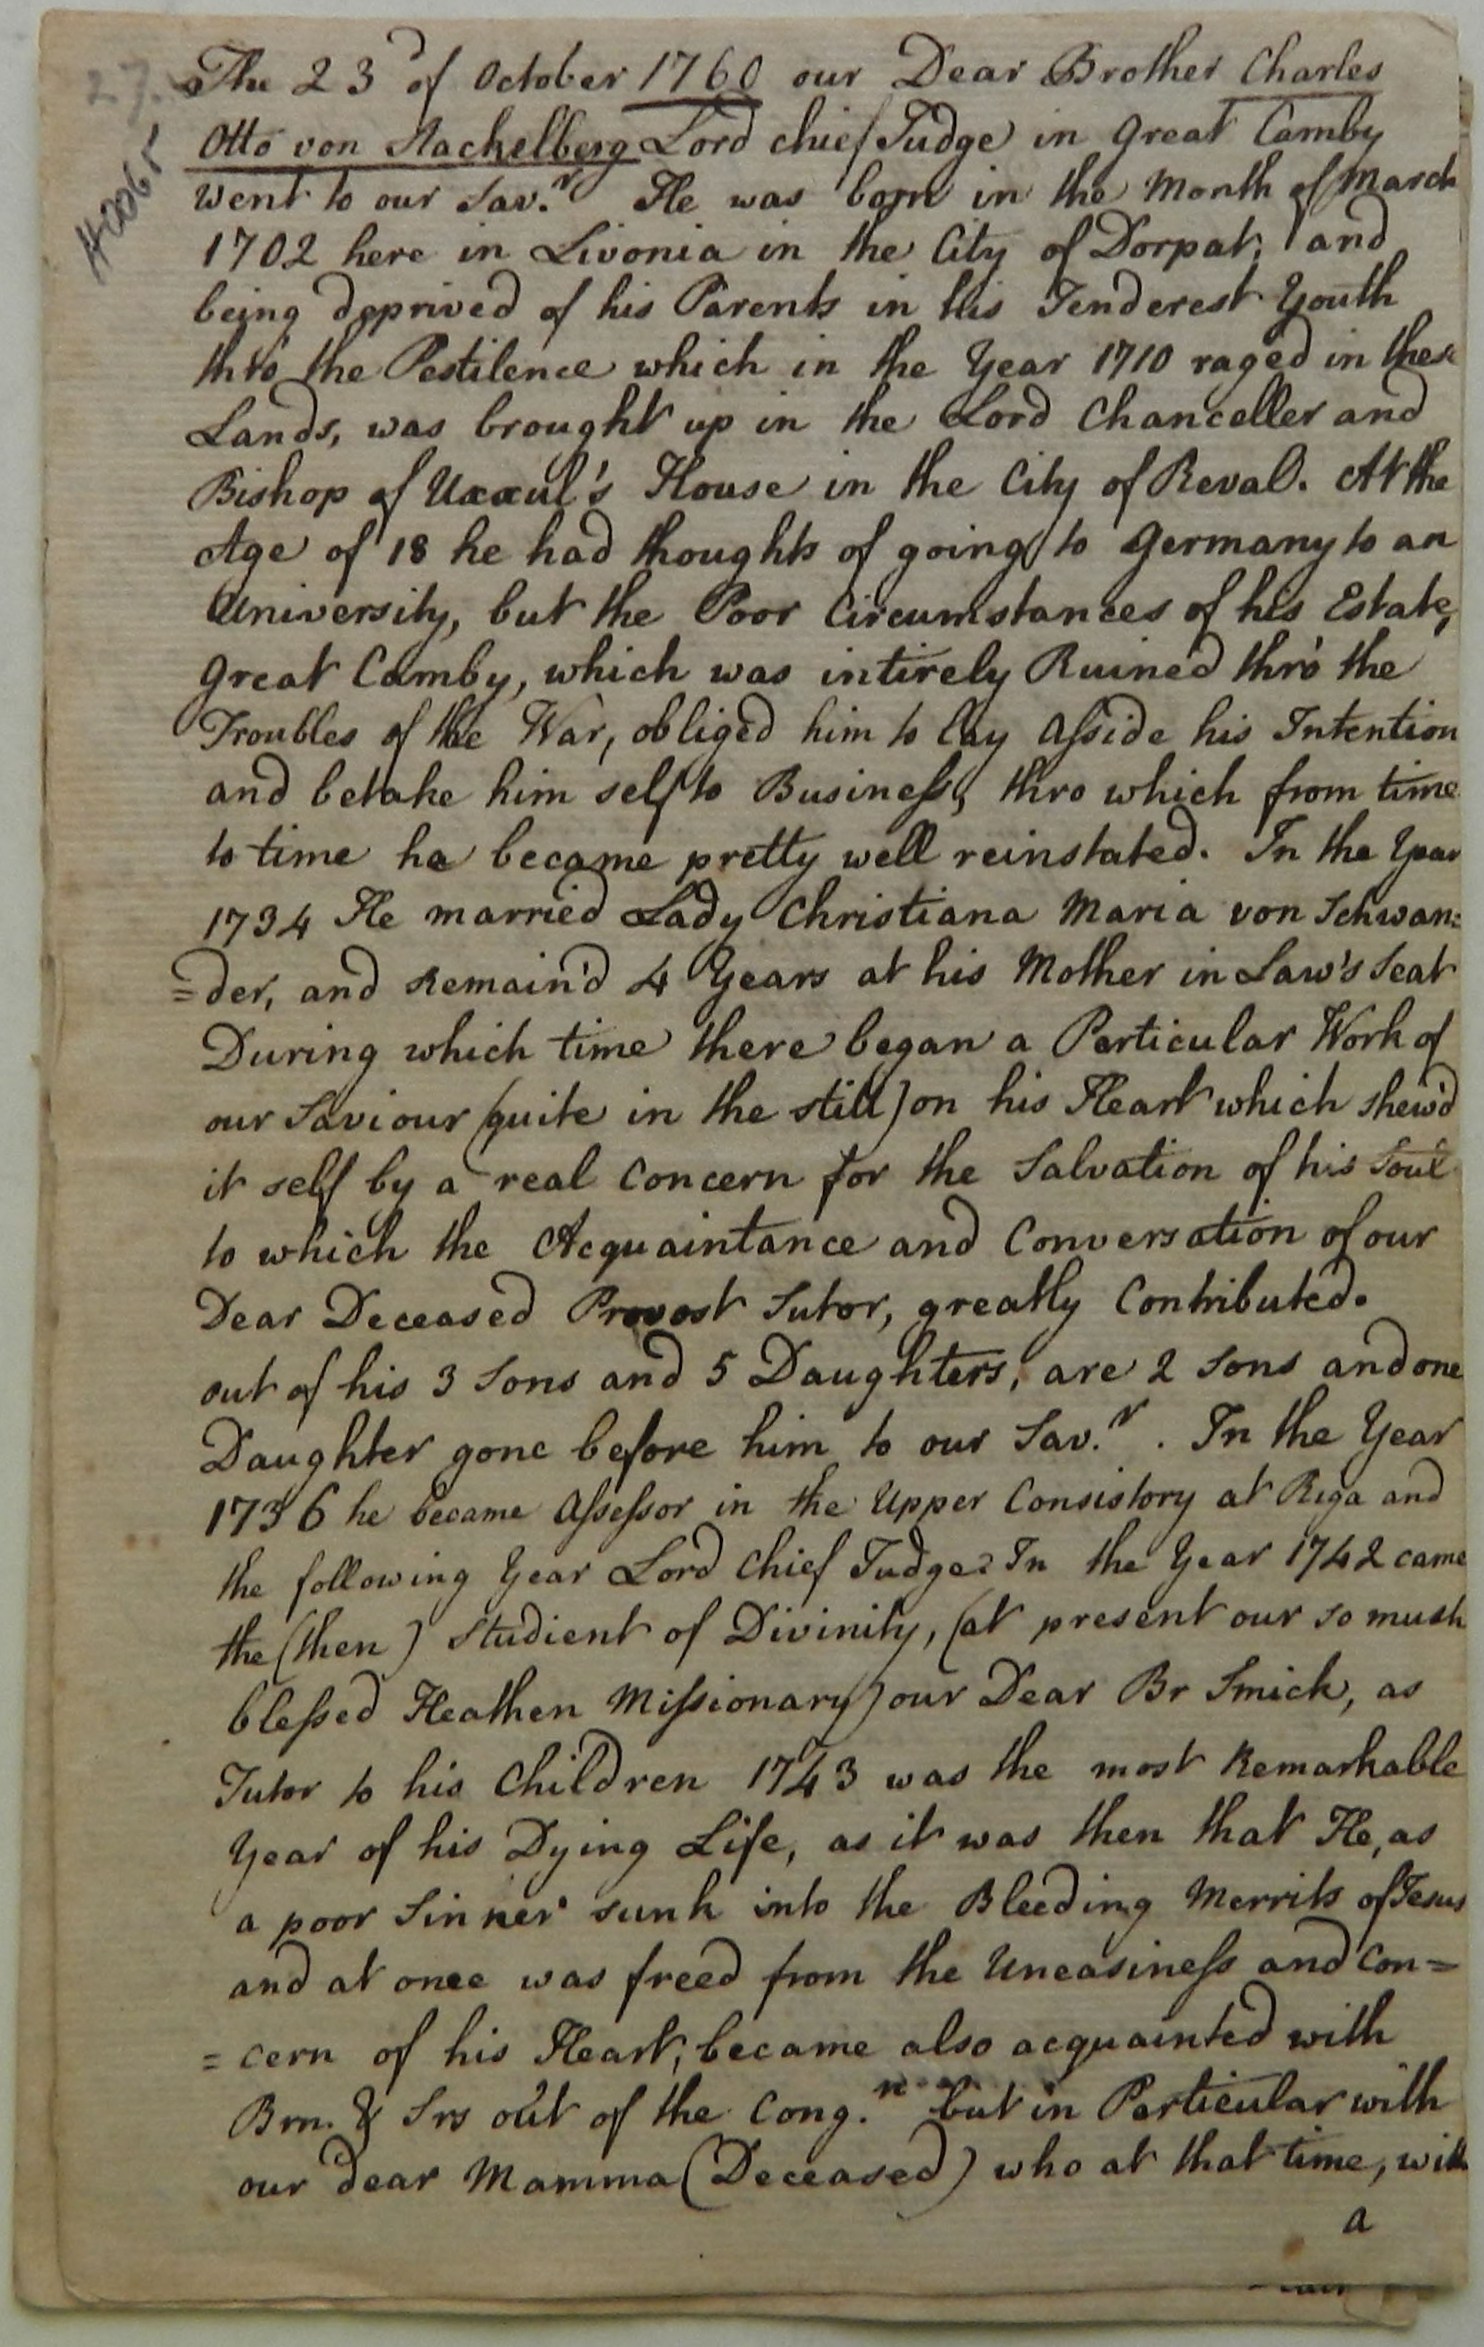 27.
H0065
The 23d of October 1760 our Dear Brother Charles
Otto von Stachelberg Lord chief Judge in Great Camby
went to our Sav.r He was born in the Month of March
1702 here in Livonia in the City of Dorpat, and
being deprived of his Parents in his Tenderest Youth
thro' the Pestilence which in the Year 1710 raged in these
Lands, was brought up in the Lord Chanceller and
Bishop of Uxxul's House in the City of Reval. At the
Age of 18 he had thoughts of going to Germany to an
University, but the Poor Circumstances of his Estate,
Great Camby, which was intirely Ruined thro' the
Troubles of the War, obliged him to lay asside his Intention
and betake him self to Business, thro which from time
to time he became pretty well reinstated. In the Year
1734 He married Lady Christiana Maria von Schwan=
=der, and Remain'd 4 Years at his Mother in Law's Seat
During which time there began a Perticular Work of
our Saviour (quite in the still) on his Heart which shew'd
it self by a real Concern for the Salvation of his Soul
to which the Acquaintance and Conversation of our
Dear Deceased Provost Sutor, greatly Contributed.
out of his 3 Sons and 5 Daughters, are 2 Sons and one
Daughter gone before him to our Sav.r. In the Year
1736 he became Assessor in the Upper Consistory at Riga and
the following Year Lord Chief Judge. In the Year 1742 came
the (then) Studient of Divinity, (at present our so mush
blessed Heathen Missionary) our Dear Br Smick, as
Tutor to his Children 1743 was the most Remarkable
Year of his Dying Life, as it was then that He, as
a poor Sinner sunk into the Bleeding Merrits of Jesus
and at once was freed from the Uneasiness and Con=
=cern of his Heart, became also acquainted with
Brn. & Srs out of the Cong.n but in Perticular with
our dear Mamma (Deceased) who at that time, with
a